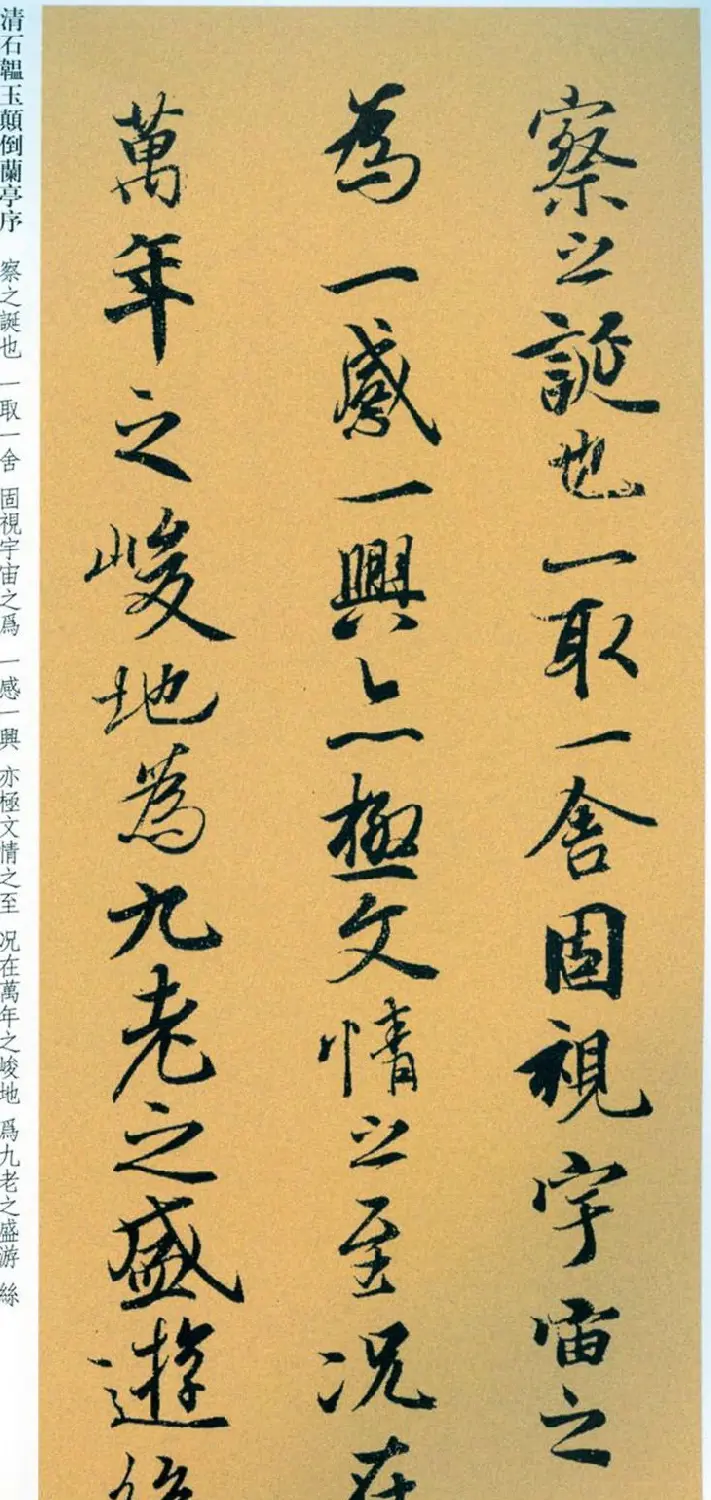 察之誕也一取一舍固視宇宙之
為一感一興亦極文情之至况在
萬年之峻地為九老之盛遊絲
清石韞玉顛倒蘭亭序 察之誕也 一取一舍 固視宇宙之爲 一感一興 亦極文情之至 况在萬年之峻地 爲九老之盛游 絲